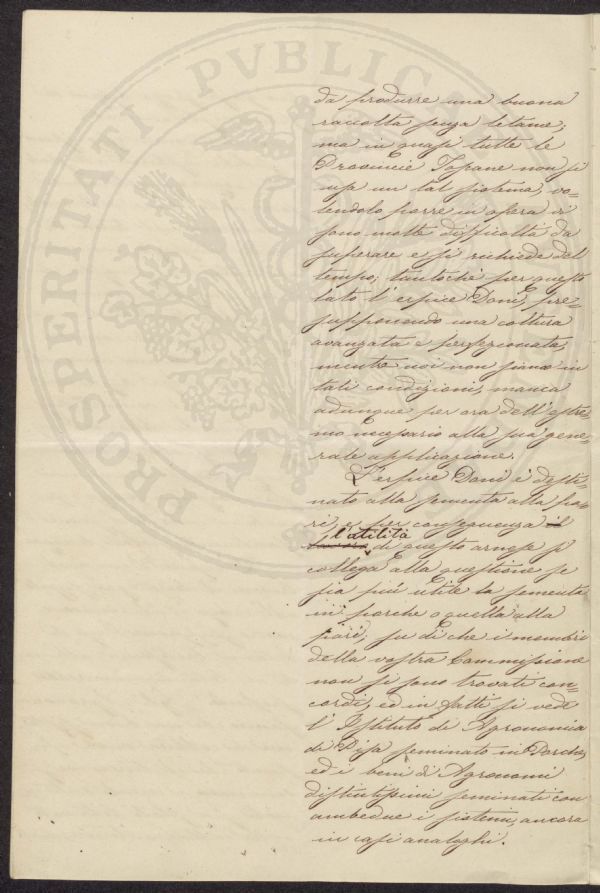 PROSPERITATI PVBLICAE
da produrre una buona
raccolta senza letame;
ma in quasi tutte le
Provincie Toscane non si
usa un tal sistema, vo=
lendolo porre in opera vi
sono molte difficoltà da
superare e si richiede del
tempo; tantochè per questo
lato l'erpice Dani, pre=
supponendo una coltura
avanzata e perfezionata,
mentre noi non siamo in
tali condizioni, manca
adunque per ora dell'estre=
mo necessario alla sua gene=
rale applicazione.
L'erpice Dani è desti=
nato alla sementa alla pa=
ri, e per conseguenza il
l'utilità
lavoro di questo arnese si
collega alla questione se
sia più utile la sementa
in porche o quella alla
pari; su di che i membri
della vostra Commissione
non si sono trovati con=
cordi, ed in fatti si vede
l'Istituto di Agronomia
di Pisa seminato in Porche,
ed i beni di Agronomi
distintissimi seminati con
ambedue i sistemi, ancora
in casi analoghi.